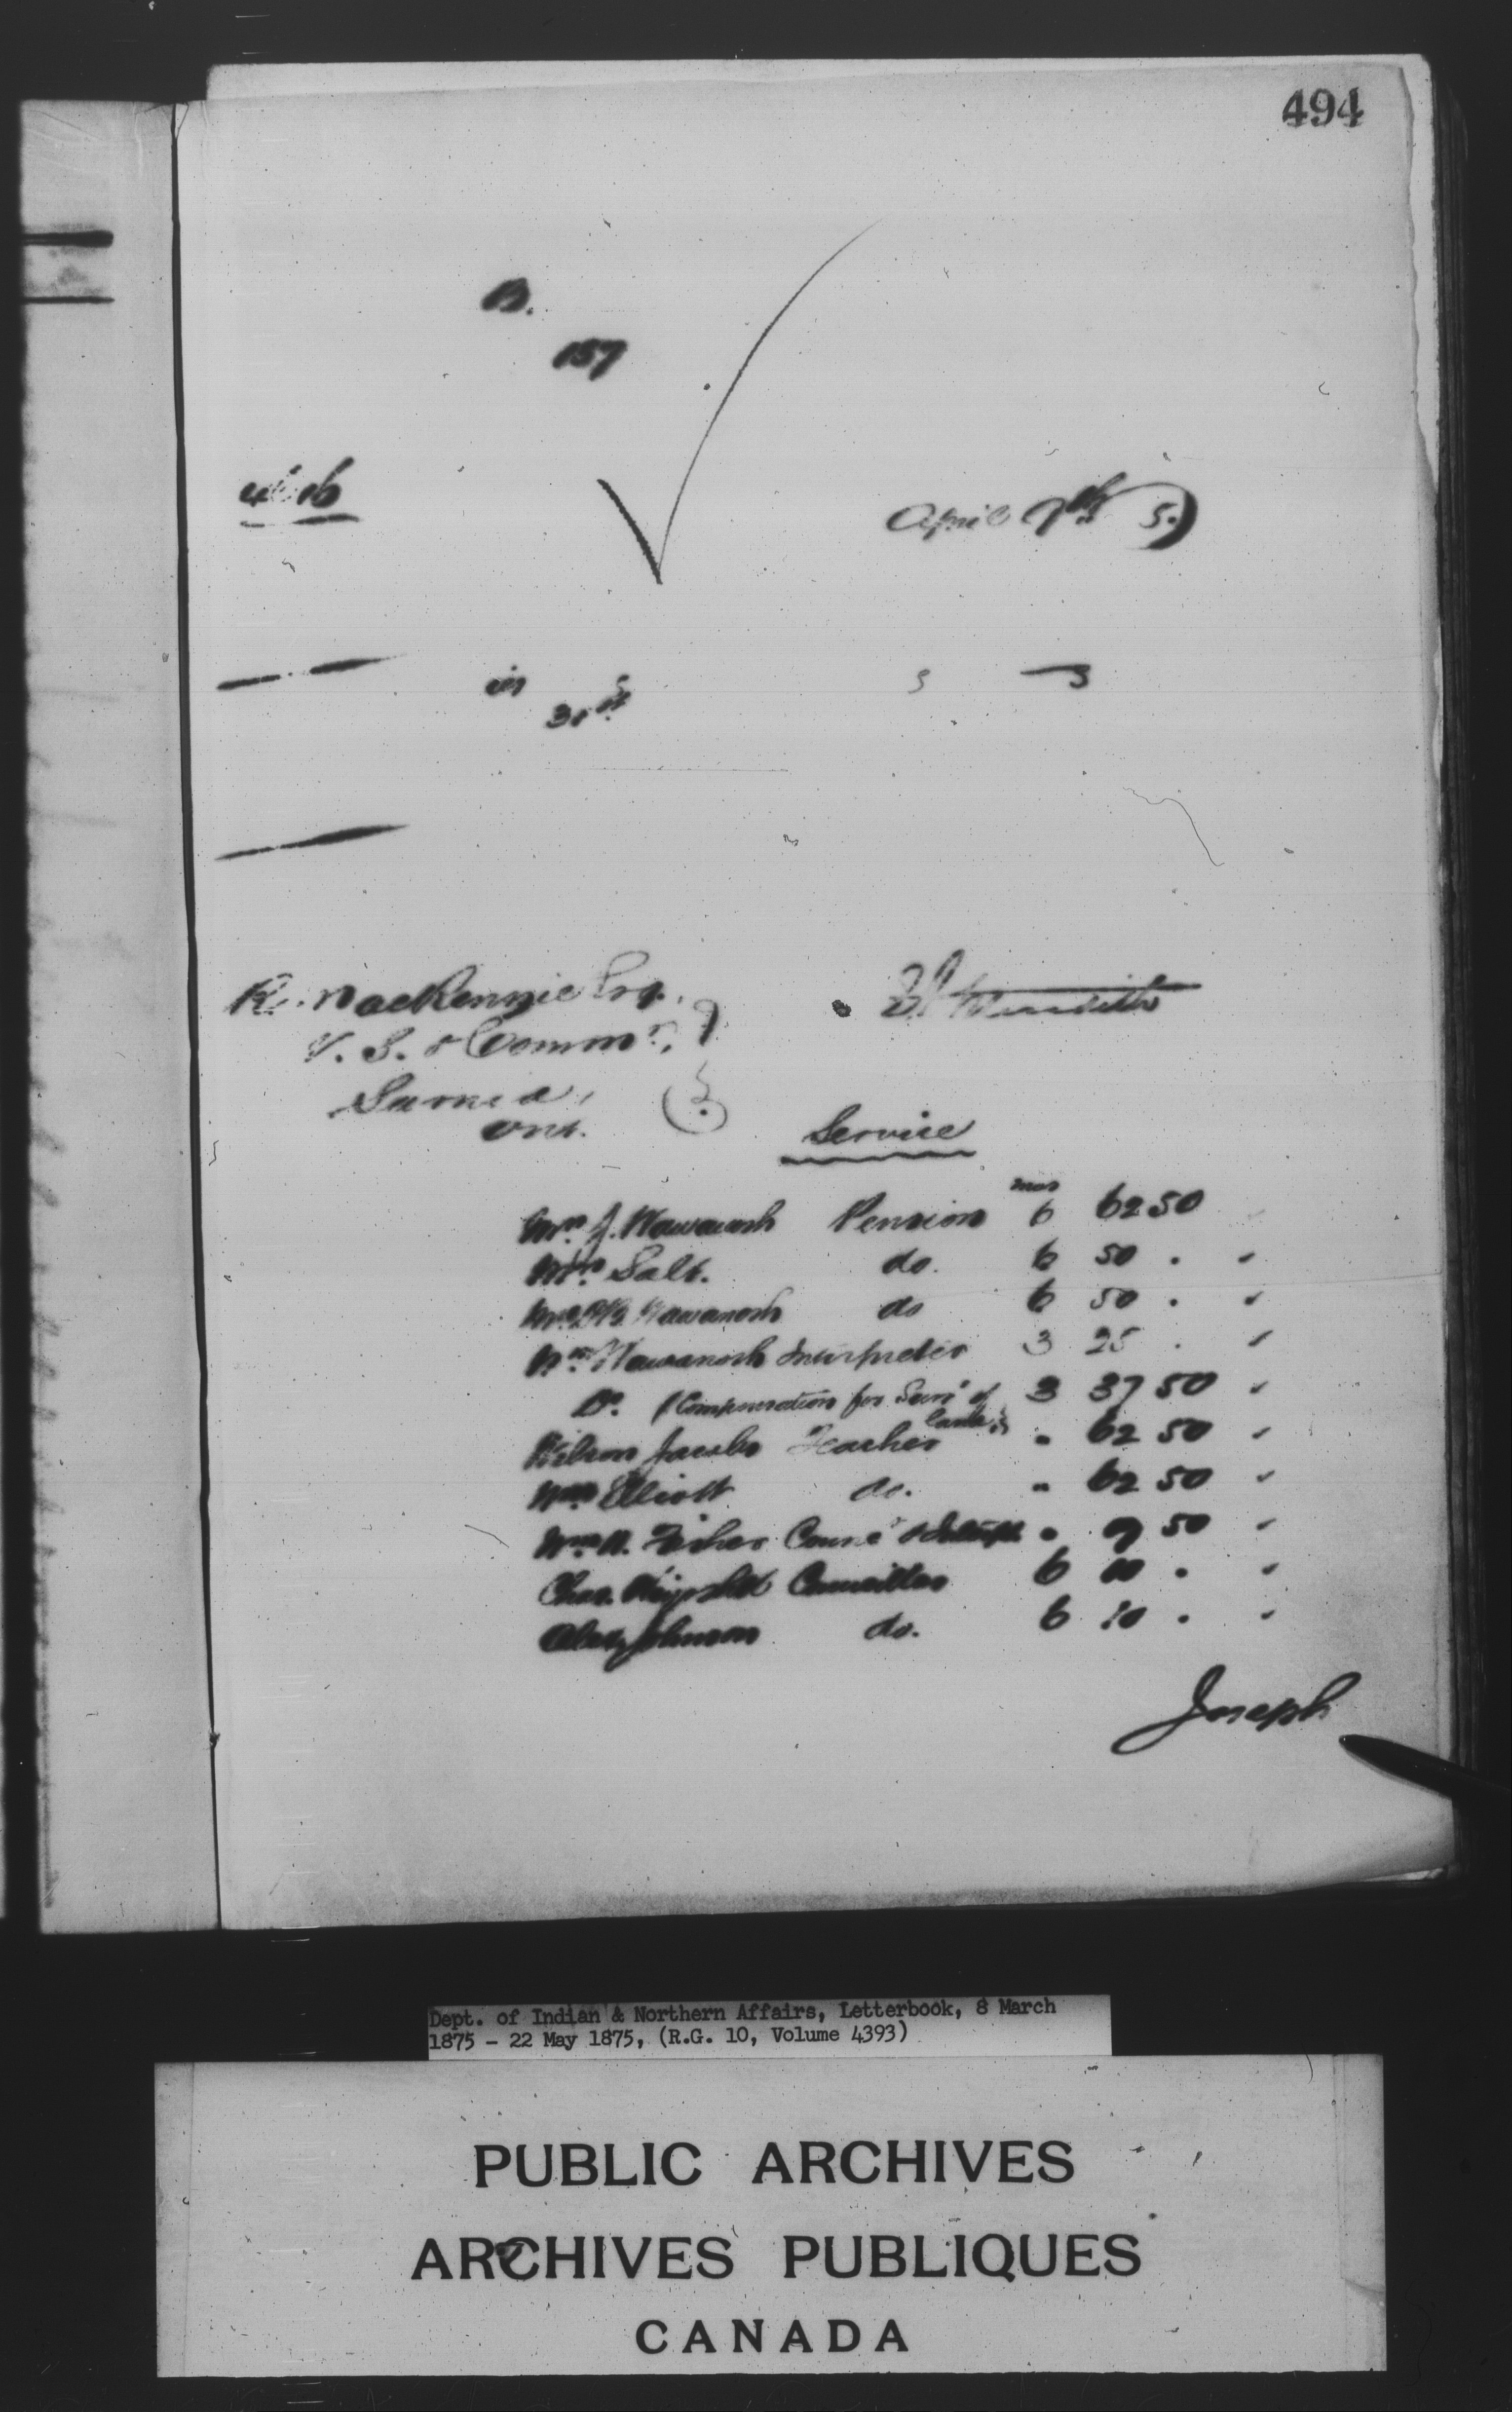 494
B.
157
April 7th 5.)
in
31st
R. MacKenzie Esq.
V. S. & Commr.
Sarnia,
Ont.
Service
mos
Mrs J. Wawanosh Pension 6 62 50
Mrs Salt. do. 6 50 .
Mrs Wawanosh do 6 50 .
Wm Wawanosh Interpreter 3 25 .
Do. (Compensation for Surr of land) 3 37 50
Wilson Jacobs Teacher " 62 50
Wm Elliott do. " 62 50
Wm N. Fisher " 50
Chas. Councillor 6 10 .
Alex Johnson do. 6 10 .
Joseph
Dept. of Indian & Northern Affairs, Letterbook, 8 March
1875 - 22 May 1875, (R.G. 10, Volume 4393)
PUBLIC ARCHIVES
ARCHIVES PUBLIQUES
CANADA